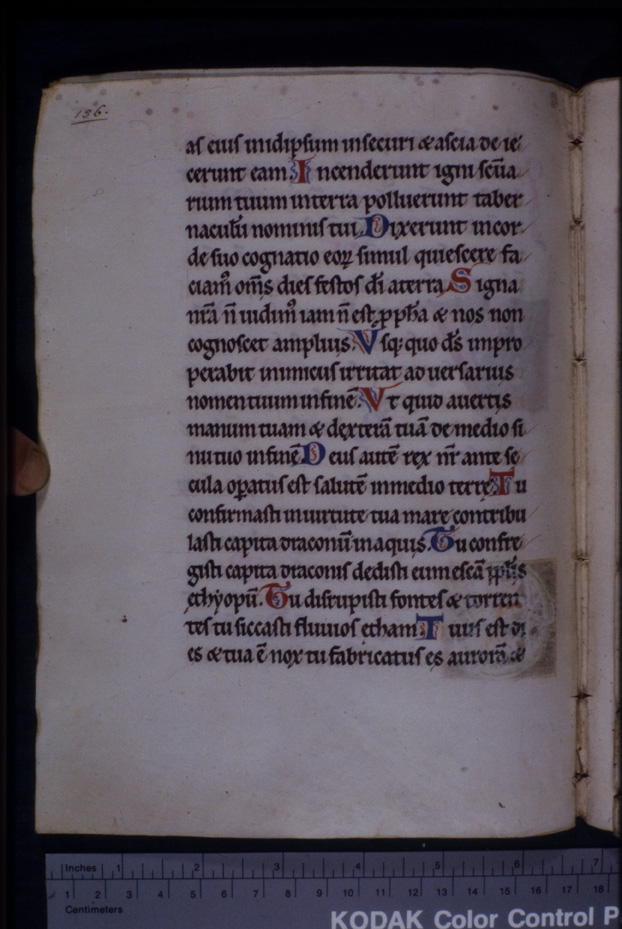 136.
as eius in idipsum in securi & ascia de ie
cerunt eam. Incenderunt igni sc̄ua
rium tuum in terra polluerunt taber
naculū nominis tui. Dixerunt in cor
de suo cognatio eoꝝ simul quiescere fa
ciam᷒ om̄s dies festos dī a terra Signa
nr̄a n̄ uidim᷒ iam n̄ est ꝓph̄a & nos non
cognoscet amplius. Vsq; quo ds̄ impro
perabit inimicus irritat aduersarius
nomen tuum in finē. Vt quid auertis
manum tuam & dexterā tuā de medio si
nu tuo in finē Deus autē rex nr̄ ante se
cula op̄atus est salutē in medio terre Tu
confirmasti in uirtute tua mare contribu
lasti capita draconū in aquis. Tu confre
gisti capita draconis dedisti eum escā pp̄lis
ethyopū. Tu disrupisti fontes & torren
tes tu siccasti fluuios etham Tuus est di
es & tua ē nox tu fabricatus es aurorā &
Inches 1 2 3 4 5 6 7
1 2 3 4 5 6 7 8 9 10 11 12 13 14 15 16 17 18
Centimeters
KODAK Color Control P